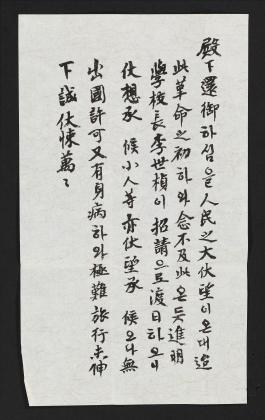 殿下還御하심은人民之大伏望이온대迨
此革命之初하와念不及此온듯進明
學校長李世楨이招請으로渡日하오니
伏想承 候小人等亦伏望承 候오나無
出國許可又有身病하와極難旅行未伸
下誠伏悚萬々